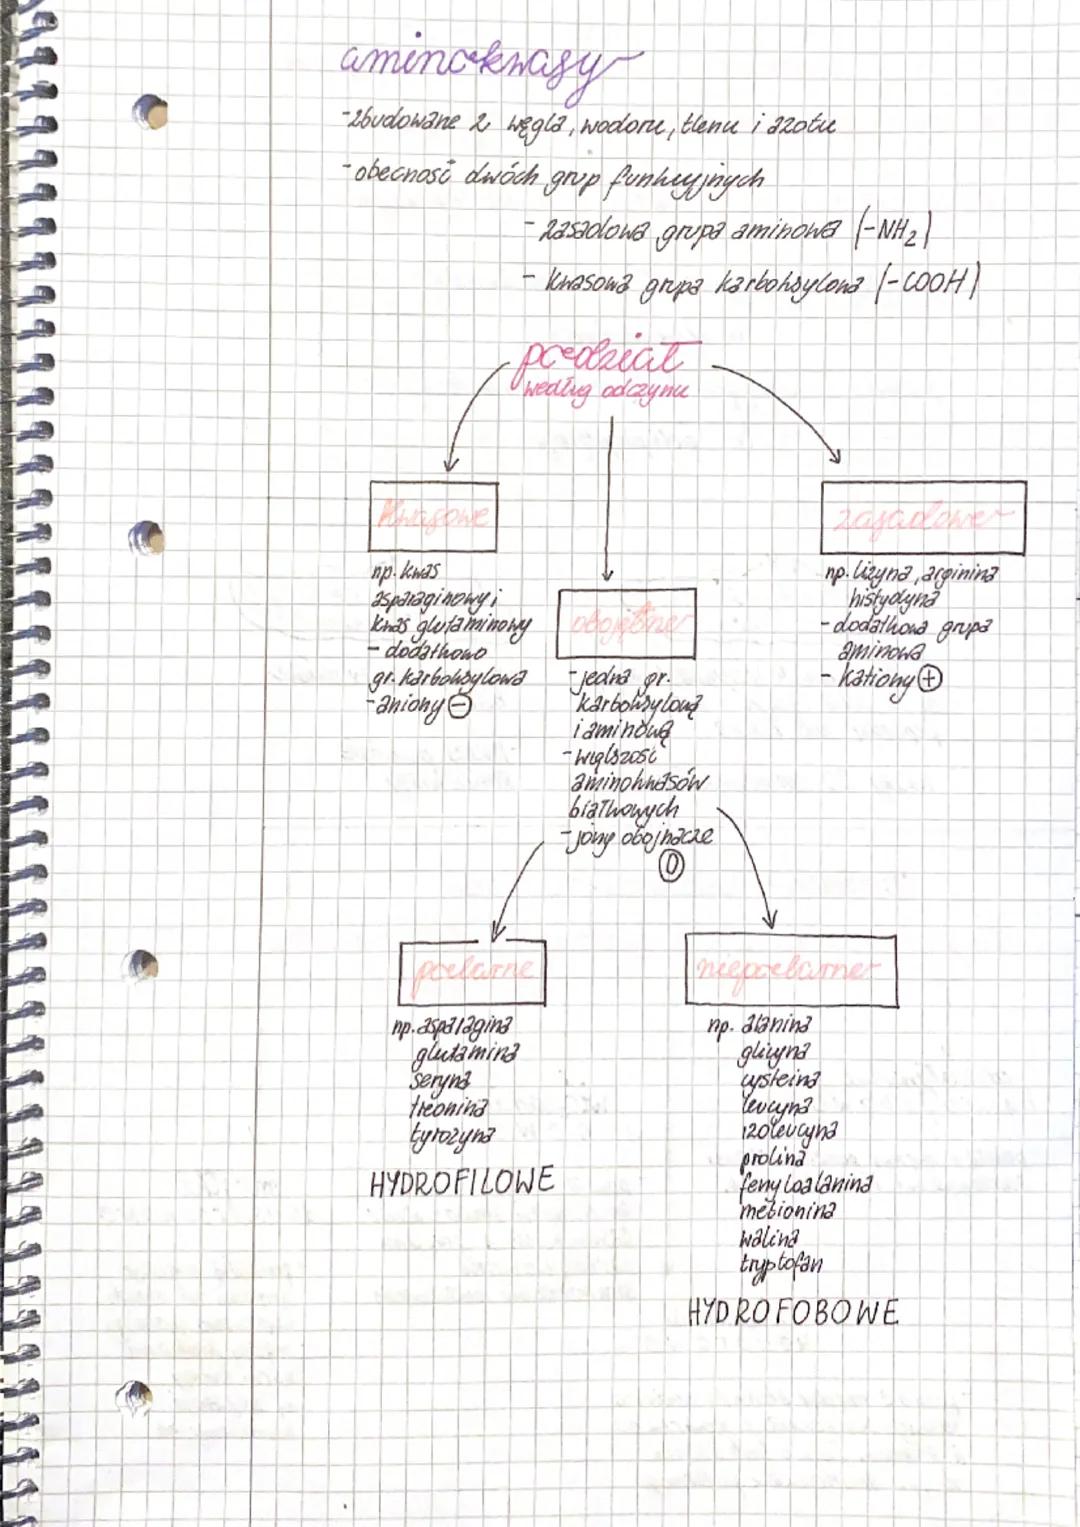 aminokwasy
-zbudowane z węgla, wodoru, tlenu i azotu
-obecność dwóch grup funkcyjnych
- zasadowa grupa aminowa (-NH2)
- kwasowa grupa karboksylowa (-COOH)
podział
według odczynu
kwasowe
np. kwas
asparaginowy i
kwas glutaminowy
- dodatkowo
gr. karboksylowa
-aniony ⊖
obojętne
-jedna gr.
karboksylową
i aminową
-większość
aminokwasów
białkowych
-jony obojnacze
0
zasadowe
np. lizyna, arginina
histydyna
-dodatkowa grupa
aminowa
- kationy ⊕
polarne
np. asparagina
glutamina
seryna
treonina
tyrozyna
HYDROFILOWE
niepolarne
np. alanina
glicyna
cysteina
leucyna
izoleucyna
prolina
fenyloalanina
metionina
walina
tryptofan
HYDROFOBOWE